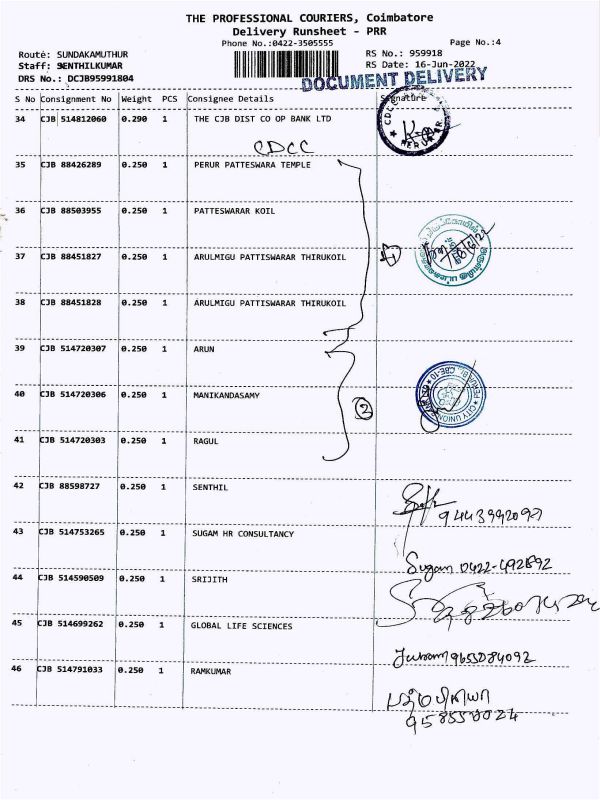 THE PROFESSIONAL COURIERS, Coimbatore
Delivery Runsheet - PRR
Phone No.:0422-3505555
Page No.:4
Route: SUNDAKAMUTHUR
RS No.: 959918
Staff: SENTHILKUMAR
RS Date: 16-Jun-2022
DRS No.: DCJB95991804
DOCUMENT DELIVERY
S No Consignment No Weight PCS Consignee Details Signature
34 CJB 514812060 0.290 1 THE CJB DIST CO OP BANK LTD
CDCC
35 CJB 88426289 0.250 1 PERUR PATTESWARA TEMPLE
36 CJB 88503955 0.250 1 PATTESWARAR KOIL
37 CJB 88451827 0.250 1 ARULMIGU PATTISWARAR THIRUKOIL
38 CJB 88451828 0.250 1 ARULMIGU PATTISWARAR THIRUKOIL
39 CJB 514720307 0.250 1 ARUN
40 CJB 514720306 0.250 1 MANIKANDASAMY
CITY UNION
41 CJB 514720303 0.250 1 RAGUL
42 CJB 88598727 0.250 1 SENTHIL
43 CJB 514753265 0.250 1 SUGAM HR CONSULTANCY
Sugam
44 CJB 514590509 0.250 1 SRIJITH
45 CJB 514699262 0.250 1 GLOBAL LIFE SCIENCES
46 CJB 514791033 0.250 1 RAMKUMAR